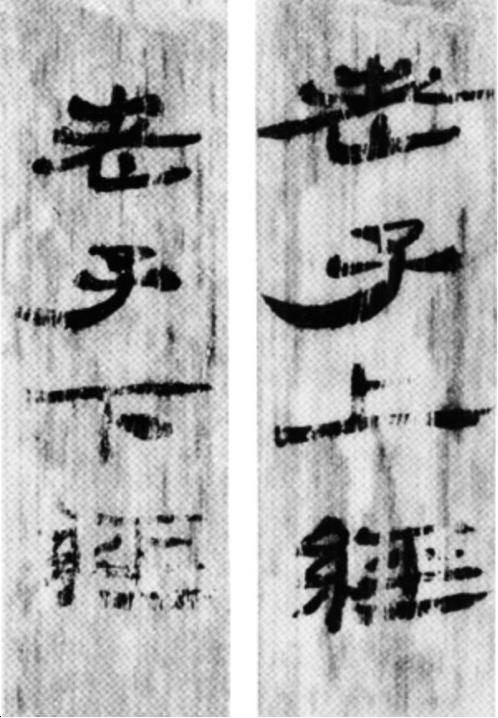 老子上經
老子下經